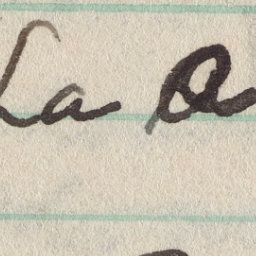 La a